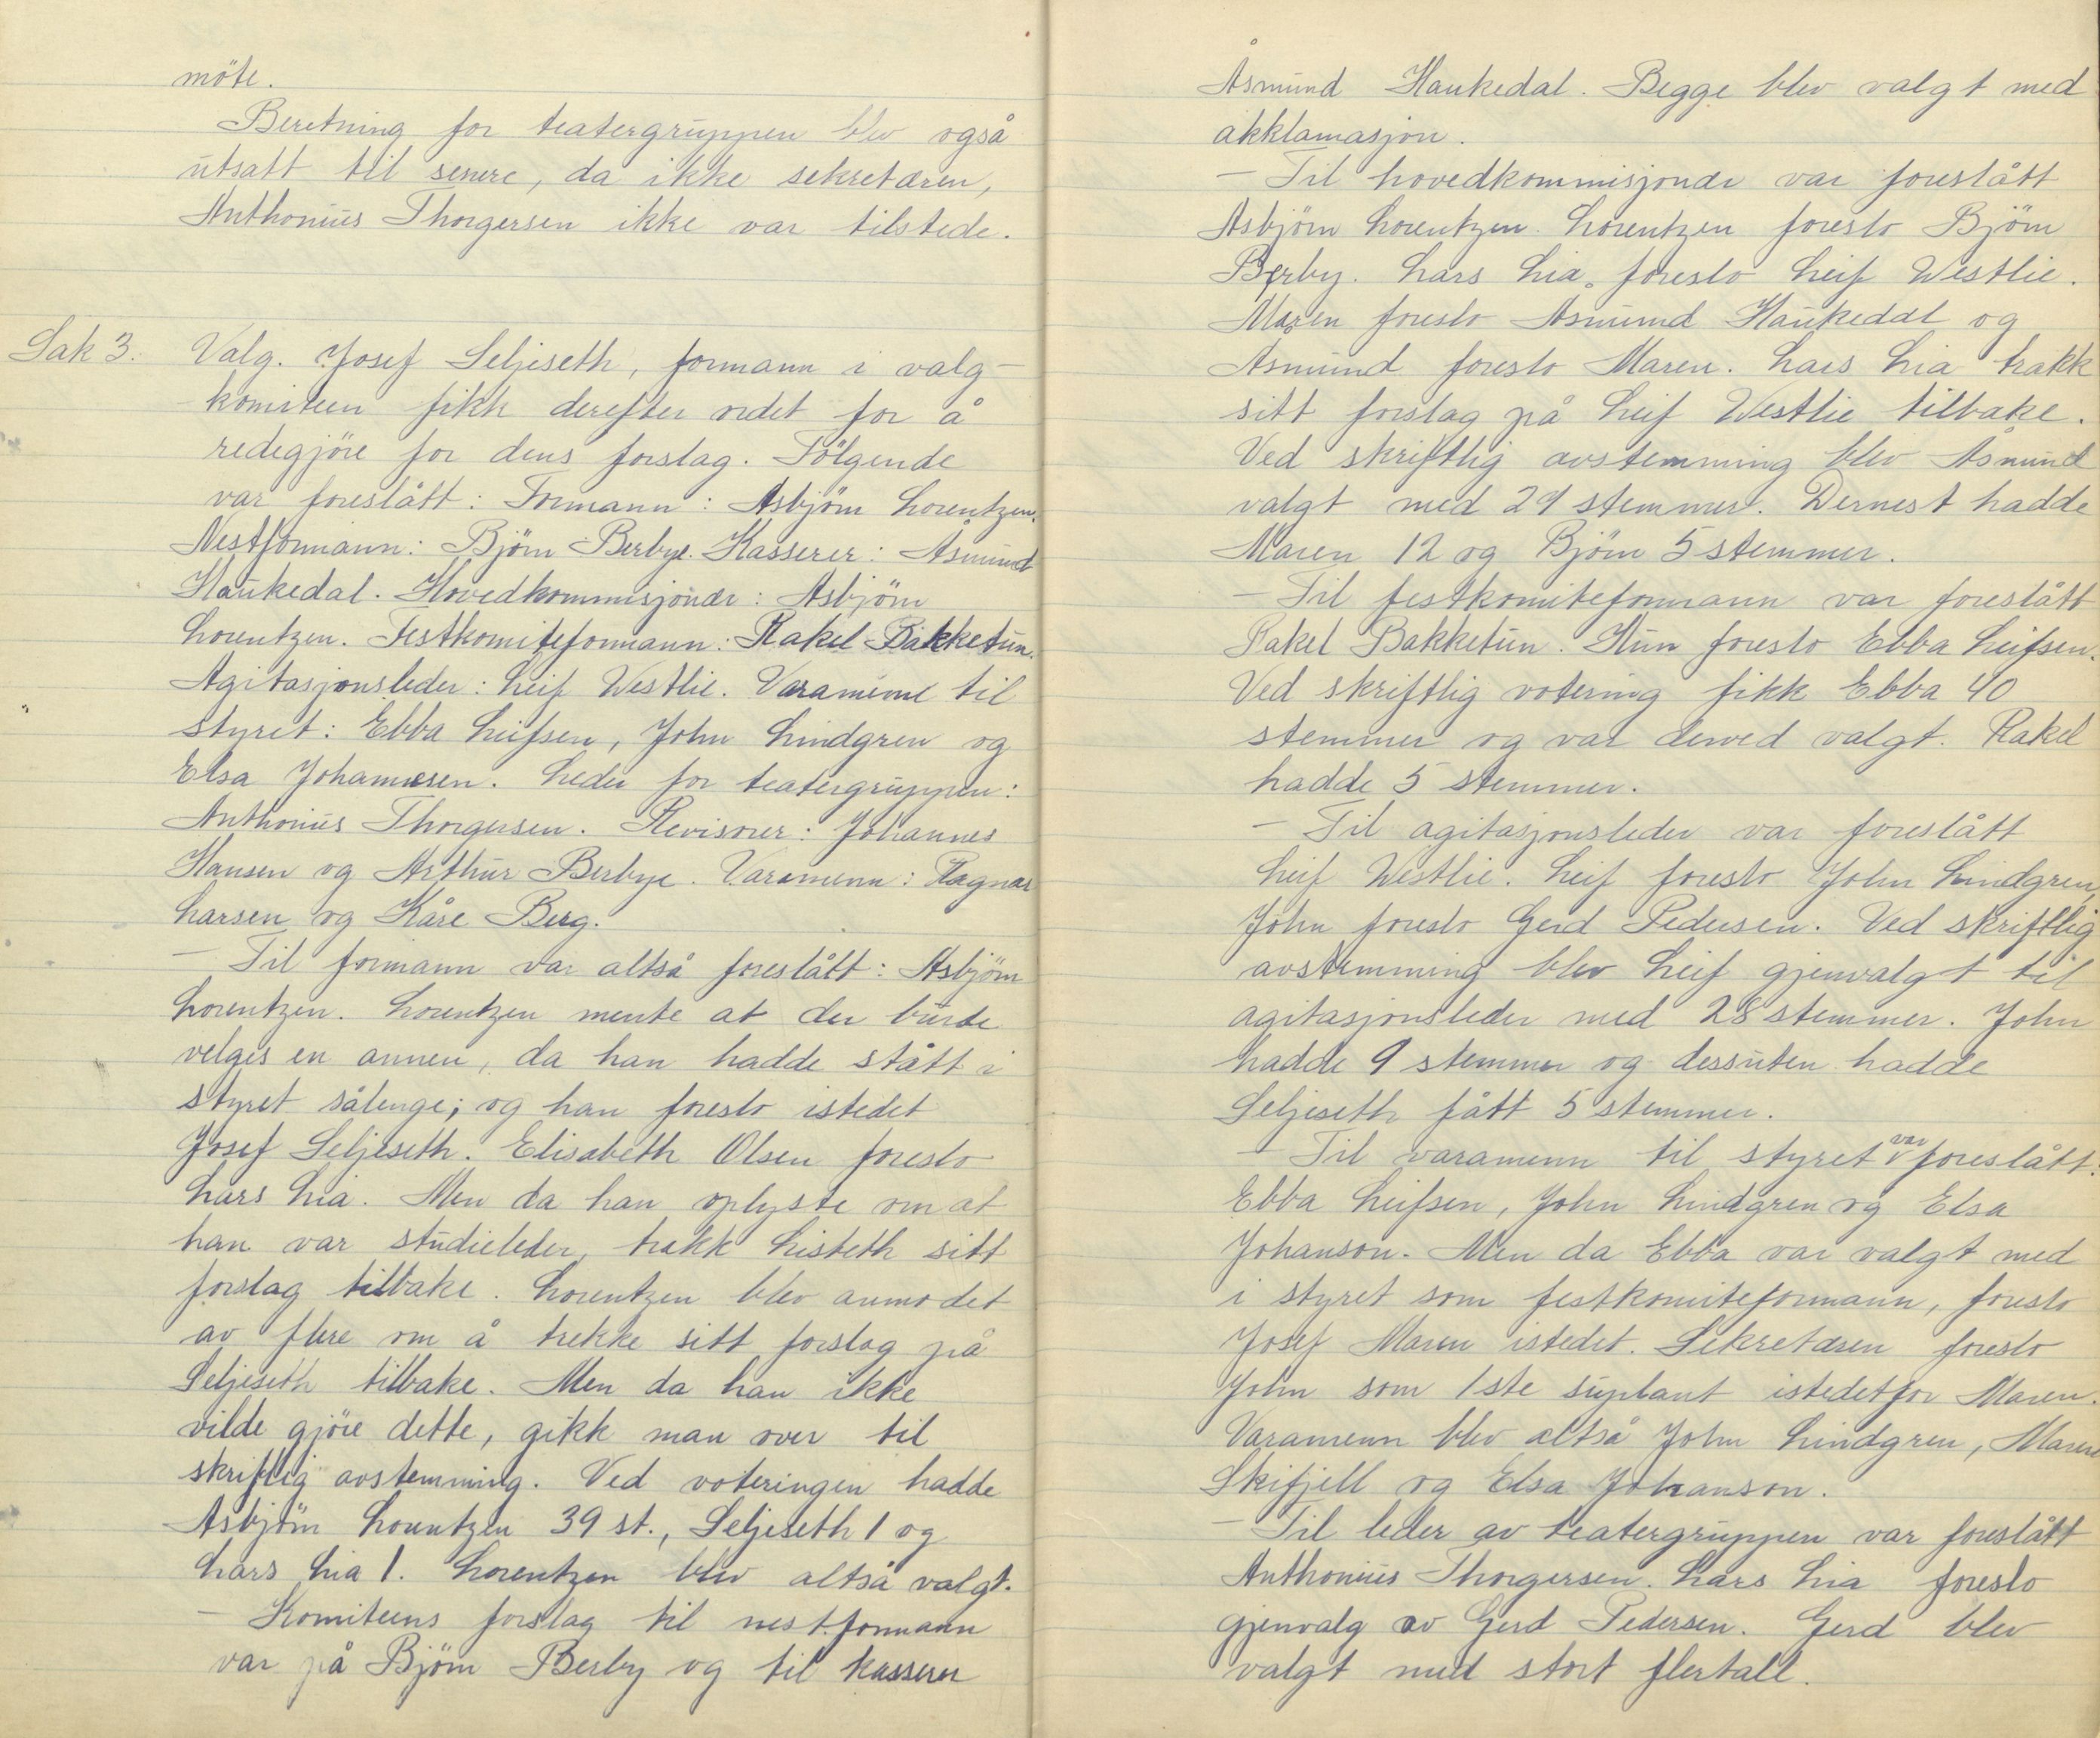 möte.
Beretning for teatergruppen blev også
utsatt til senere, da ikke sekretæren,
Anthonius Thorgersen ikke var tilstede.
Sak 3. Valg. Josef Seljeseth, formann i valg-
komiteen fikk derefter ordet for å
redegjöre for dens forslag. Fölgende
var foreslått: Formann: Asbjörn Lorentzen.
Nestformann: Björn Berbye. Kasserer: Åsmund
Haukedal. Hovedkommisjonær: Asbjörn
Lorentzen. Festkomiteformann: Rakel Bakketun.
Agitasjonsleder: Leif Westlie. Varamenn til
styret: Ebba Leifsen, John Lindgren og
Elsa Johannesen. Leder for teatergruppen:
Anthonius Thorgersen. Revisorer: Johannes
Hansen og Arthur Berbye. Varamenn: Ragnar
Larsen og Kåre Berg.
- Til formann var altså foreslått: Asbjörn
Lorentzen. Lorentzen mente at der burde
velges en annen, da han hadde stått i
styret sålenge; og han foreslo istedet
Josef Seljeseth. Elisabeth Olsen foreslo
Lars Lia. Men da han oplyste om at
han var studieleder, trakk Lisbeth sitt
forslag tilbake. Lorentzen blev anmodet
av flere om å trekke sitt forslag på
Seljeseth tilbake. Men da han ikke
vilde gjöre dette, gikk man over til
skriftlig avstemming. Ved voteringen hadde
Asbjörn Lorentzen 39 st., Seljeseth 1 og
Lars Lia 1. Lorentzen blev altså valgt.
- Komiteens forslag til nestformann
var på Björn Berby og til kasserer
Åsmund Haukedal. Begge blev valgt med
akklamasjon.
- Til hovedkommisjonær var foreslått
Asbjörn Lorentzen. Lorentzen foreslo Björn
Berby. Lars Lia foreslo Leif Westlie.
Maren foreslo Åsmund Haukedal og
Åsmund foreslo Maren. Lars Lia trakk
sitt forslag på Leif Westlie tilbake.
Ved skriftlig avstemming blev Åsmund
valgt med 29 stemmer. Dernest hadde
Maren 12 og Björn 5 stemmer.
- Til festkomiteformann var foreslått
Rakel Bakketun. Hun foreslo Ebba Leifsen.
Ved skriftlig votering fikk Ebba 40
stemmer og var derved valgt. Rakel
hadde 5 stemmer.
- Til agitasjonsleder var foreslått
Leif Westlie. Leif foreslo John Lindgren,
John foreslo Gerd Pedersen. Ved skriftlig
avstemming blev Leif gjenvalgt til
agitasjonsleder med 28 stemmer. John
hadde 9 stemmer og dessuten hadde
Seljeseth fått 5 stemmer.
- Til varamenn til styret var foreslått:
Ebba Leifsen, John Lindgren og Elsa
Johanson. Men da Ebba var valgt med
i styret som festkomiteformann, foreslo
Josef Maren istedet. Sekretæren foreslo
John som 1ste suplant istedetfor Maren.
Varamenn blev altså John Lindgren, Maren
Skifjell og Elsa Johanson.
- Til leder av teatergruppen var foreslått
Anthonius Thorgersen. Lars Lia foreslo
gjenvalg av Gerd Pedersen. Gerd blev
valgt med stort flertall.